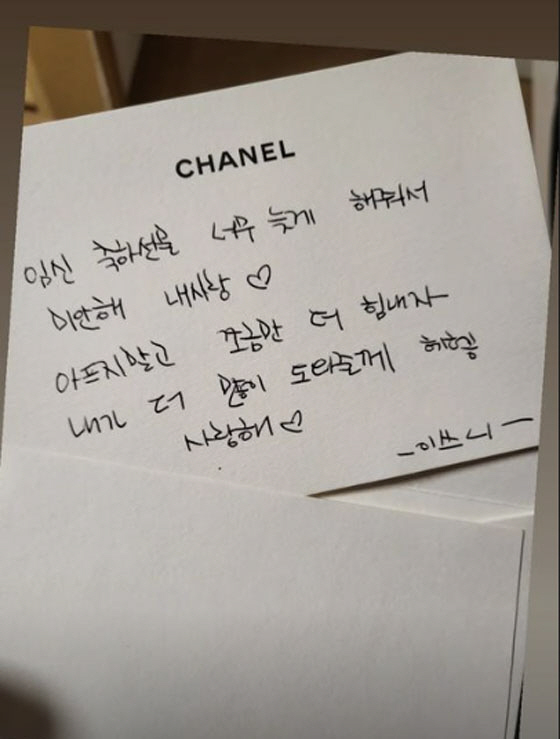 CHANEL
임신 축하선물 너무 늦게 해줘서
미안해 내사랑 ♡
아프지말고 조금만 더 힘내자
내가 더 많이 도와줄게
사랑해 ♡
-이쓰니-